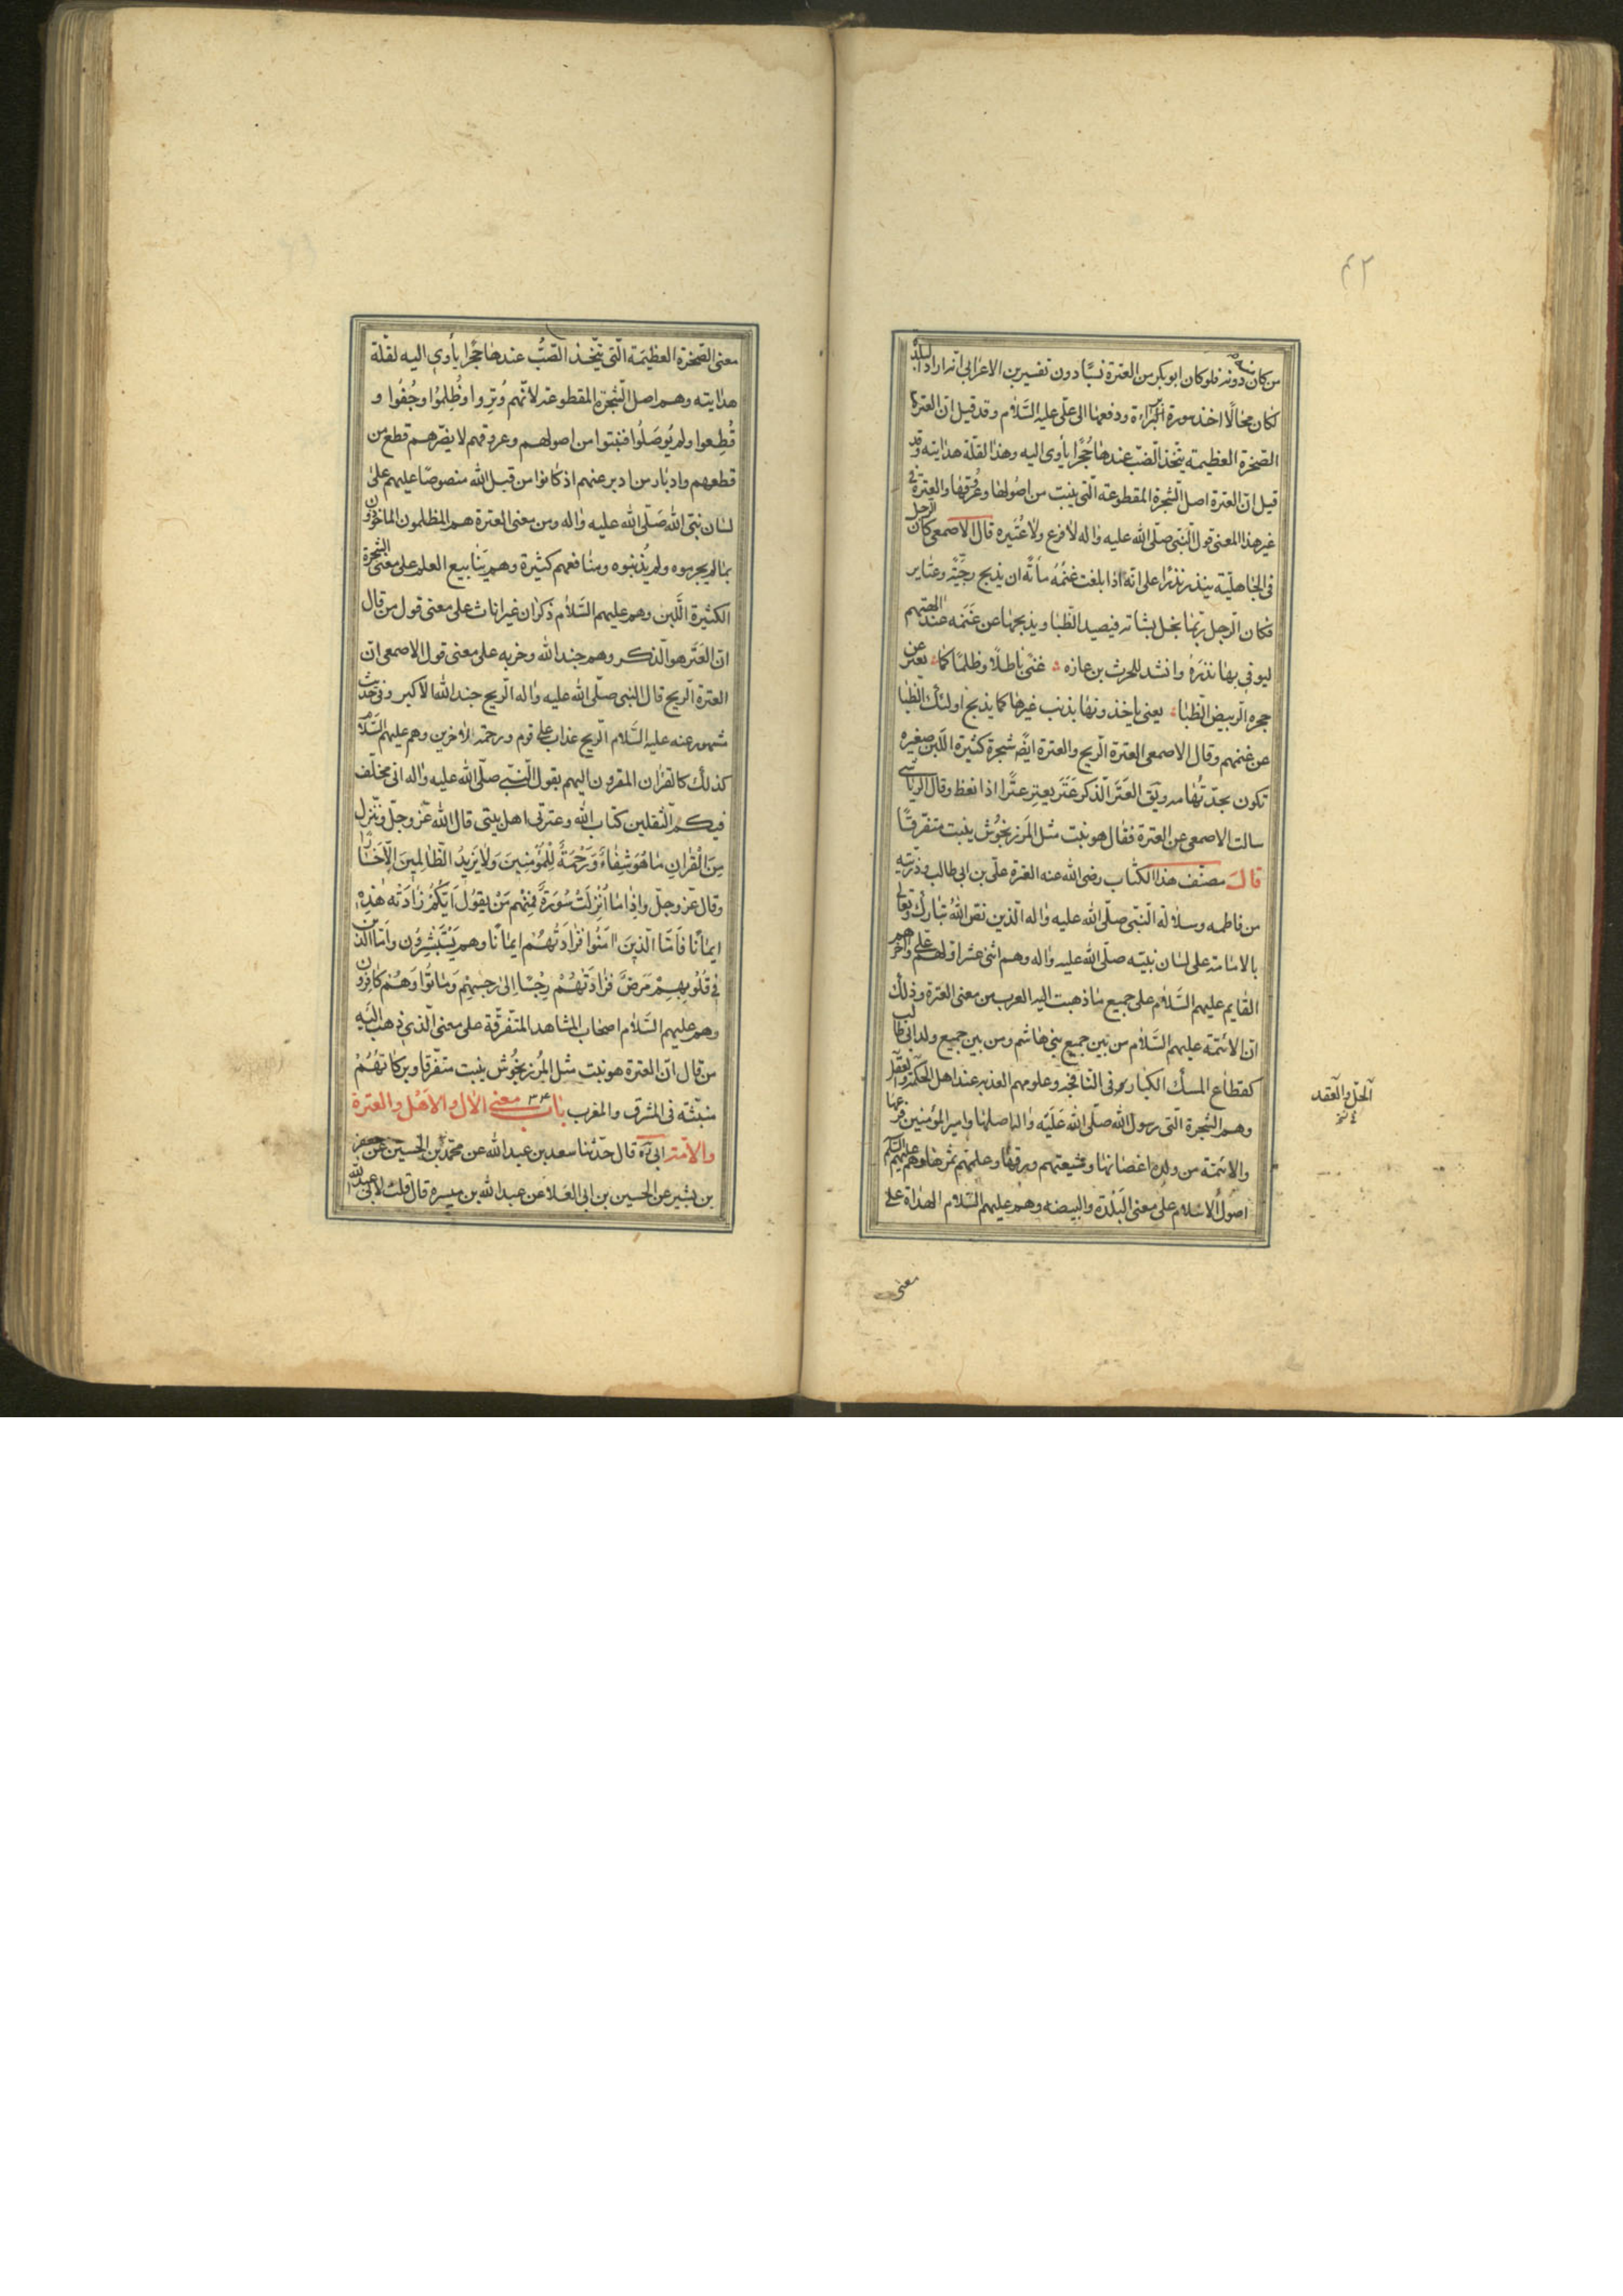 ٤٢
من كان دونه فلو كان ابو بكر من العترة نسبًا دون تفسير بن الاعرابى انه اراد البلدة
لكان محالًا اخذ سورة البراءة ودفعها الى على عليه السّلام وقد قيل ان العترة
الصّخرة العظيمة يتّخذ الضب عندها جُحرًا يأوى اليه وهذا لقلّة هدايته وقد
قيل انّ العترة اصل الشّجرة المقطوعة الّتى ينبت من اصُولها وعُرُقها والعترة فى
غير هذا المعنى قول النّبى صلّى الله عليه واٰله لا فرع ولا عُتَيره قال الاصمعى كان الرجل
فى الجاهليّة ينذر نذرًا على انّه اذا بلغت غنمُهُ مأتًه ان يذبح رجبيّه وعتاير
فكان الرجل ربّما بخل بشاته فيصيد الظّبا ويذبحها عن غنمه عند اٰلهتهم
ليوفى بها نذرَهُ وانشد للحرث بن حلزه عَنتًا باطلًا وظلمًا كما تعتر عن
حجره الرّبيض الظّباء يعنى ياخذونها بذنب غيرها كما يذبح اولئك الظّبا
عن غنمهم وقال الاصمعى العترة الرّيح والعترة ايضًا شجرة كثيرة اللّبن صغيره
تكون بحدّ تُهامه ويق العَتر الذّكر عَتَر يعتِر عترًا اذا نعظ وقال الرّياشى
سالت الاصمعى عن العترة فقال هو نبت مثل المَرزنجُوش ينبت متفرّقًا
قال مصنّف هذا الكتاب رضى الله عنه العترة علىّ بن ابى طالب وذرّيته
من فاطمه وسلالة النّبى صلّى الله عليه واٰله الّذين نصّ اللهُ تبارك وتعالى
بالامامة على لسان نبيّه صلّى الله عليه واٰله وهم اثنى عشر اوّلهم على واٰخرهم
القايم عليهم السّلام على جميع ما ذهبت اليه العرب من معنى العترة وذلك
انّ الائمّة عليهم السّلام من بين جميع بنى هاشم ومن بين جميع ولد ابى طالب
كقطاع المسك الكبار فى النّافجه وعلومهم العذبه عند اهل الحكمة والعقل
وهم الشّجرة الّتى رسول الله صلّى الله عَلَيه واٰله اصلها وامير المؤمنين فرعها
والائمّة من ولده اغصانها وشيعتهم ورقها وعلمهم ثمرها وهم عليهم السّلم
اصُول الاسلام على معنى البَلدَة والبيضه وهم عليهم السّلام الهداة على
الحلّ والعقد
معنى
معنى الصّخرة العظيمَة الّتى يتّخذ الضبّ عندها جُحرًا يأوى اليه لقلّة
هدايته وهم اصل الشّجرة المقطوعة لأنّهم وُتِروا وظُلِمُوا وجُفُوا و
قُطِعوا ولم يُوصَلُوا فنبتوا من اصولهم وعروقهم لا يضرّهم قطع من
قطعهم وادبار من ادبر عنهم اذ كانوا من قبل الله منصوصًا عليهم على
لسان نبىّ الله صَلّى الله عليه واٰله ومن معنى العترة هم المظلمون الماخوذون
بما لم يجرموه ولم يُذنبوه ومنافعهم كثيرة وهم يَنابيع العلم على معنى الشّجرة
الكثيرة اللّبن وهم عليهم السّلام ذكران غير اناث على معنى قول من قال
انّ العَتَر هو الذّكر وهم جند الله وحزبه على معنى قول الاصمعى انّ
العترة الرّيح قال النبى صلّى الله عليه واٰله الرّيح جند الله الاكبر فى حديث
مشهور عنه عليه السّلام الرّيح عذاب على قوم ورحمة لاٰخرين وهم عليهم السّلام
كذلك كالقراٰن المقرون اليهم بقول النّبى صلّى الله عليه واٰله انى مخلّف
فيكم الثّقلين كتاب الله وعترتى اهل بيتى قال الله عَزّ وجلّ وننزل
مِنَ الْقُرآنِ مٰا هُوَ شِفٰاءٌ وَرَحْمَةٌ لِلْمُؤْمِنِينَ وَلا يَزيدُ الظّٰالِمينَ اِلّا خَسٰارًا
وقال عَزّ وجلّ وَاِذٰا مٰا اُنْزِلَتْ سُورَةٌ فَمِنْهُم مَنْ يَقُولُ اَيُّكُمْ زٰادَتْه هٰذِهِ
ايمٰانًا فَاَمّا الّذينَ اٰمَنُوا فَزٰادَتْهُمْ ايمٰانًا وهم يَسْتَبْشِرُون واَمّا الّذين
فى قُلُوبِهِمْ مَرَضٌ فَزٰادَتْهُمْ رِجْسًا اِلىٰ رِجْسِهِمْ وَمٰاتُوا وَهُمْ كٰافِرُون
وهم عليهم السّلام اصحاب المشاهد المتفرّقة على معنى الّذى ذهب اليه
من قال انّ العترة هو نبت مثل المَرزنجُوش ينبت متفرّقا وبركاتهُمْ
منبثّة فى المشرق والمغرب باب معنى الاٰل والاَهْل والعترة
والامّة ابى ره قال حدّثنا سعد بن عبد الله عن محمّد بن الحسين عن جعفر
بن بشير عن الحسين بن ابى العَلا عن عبد الله بن ميسره قال قلت لابى عبد الله